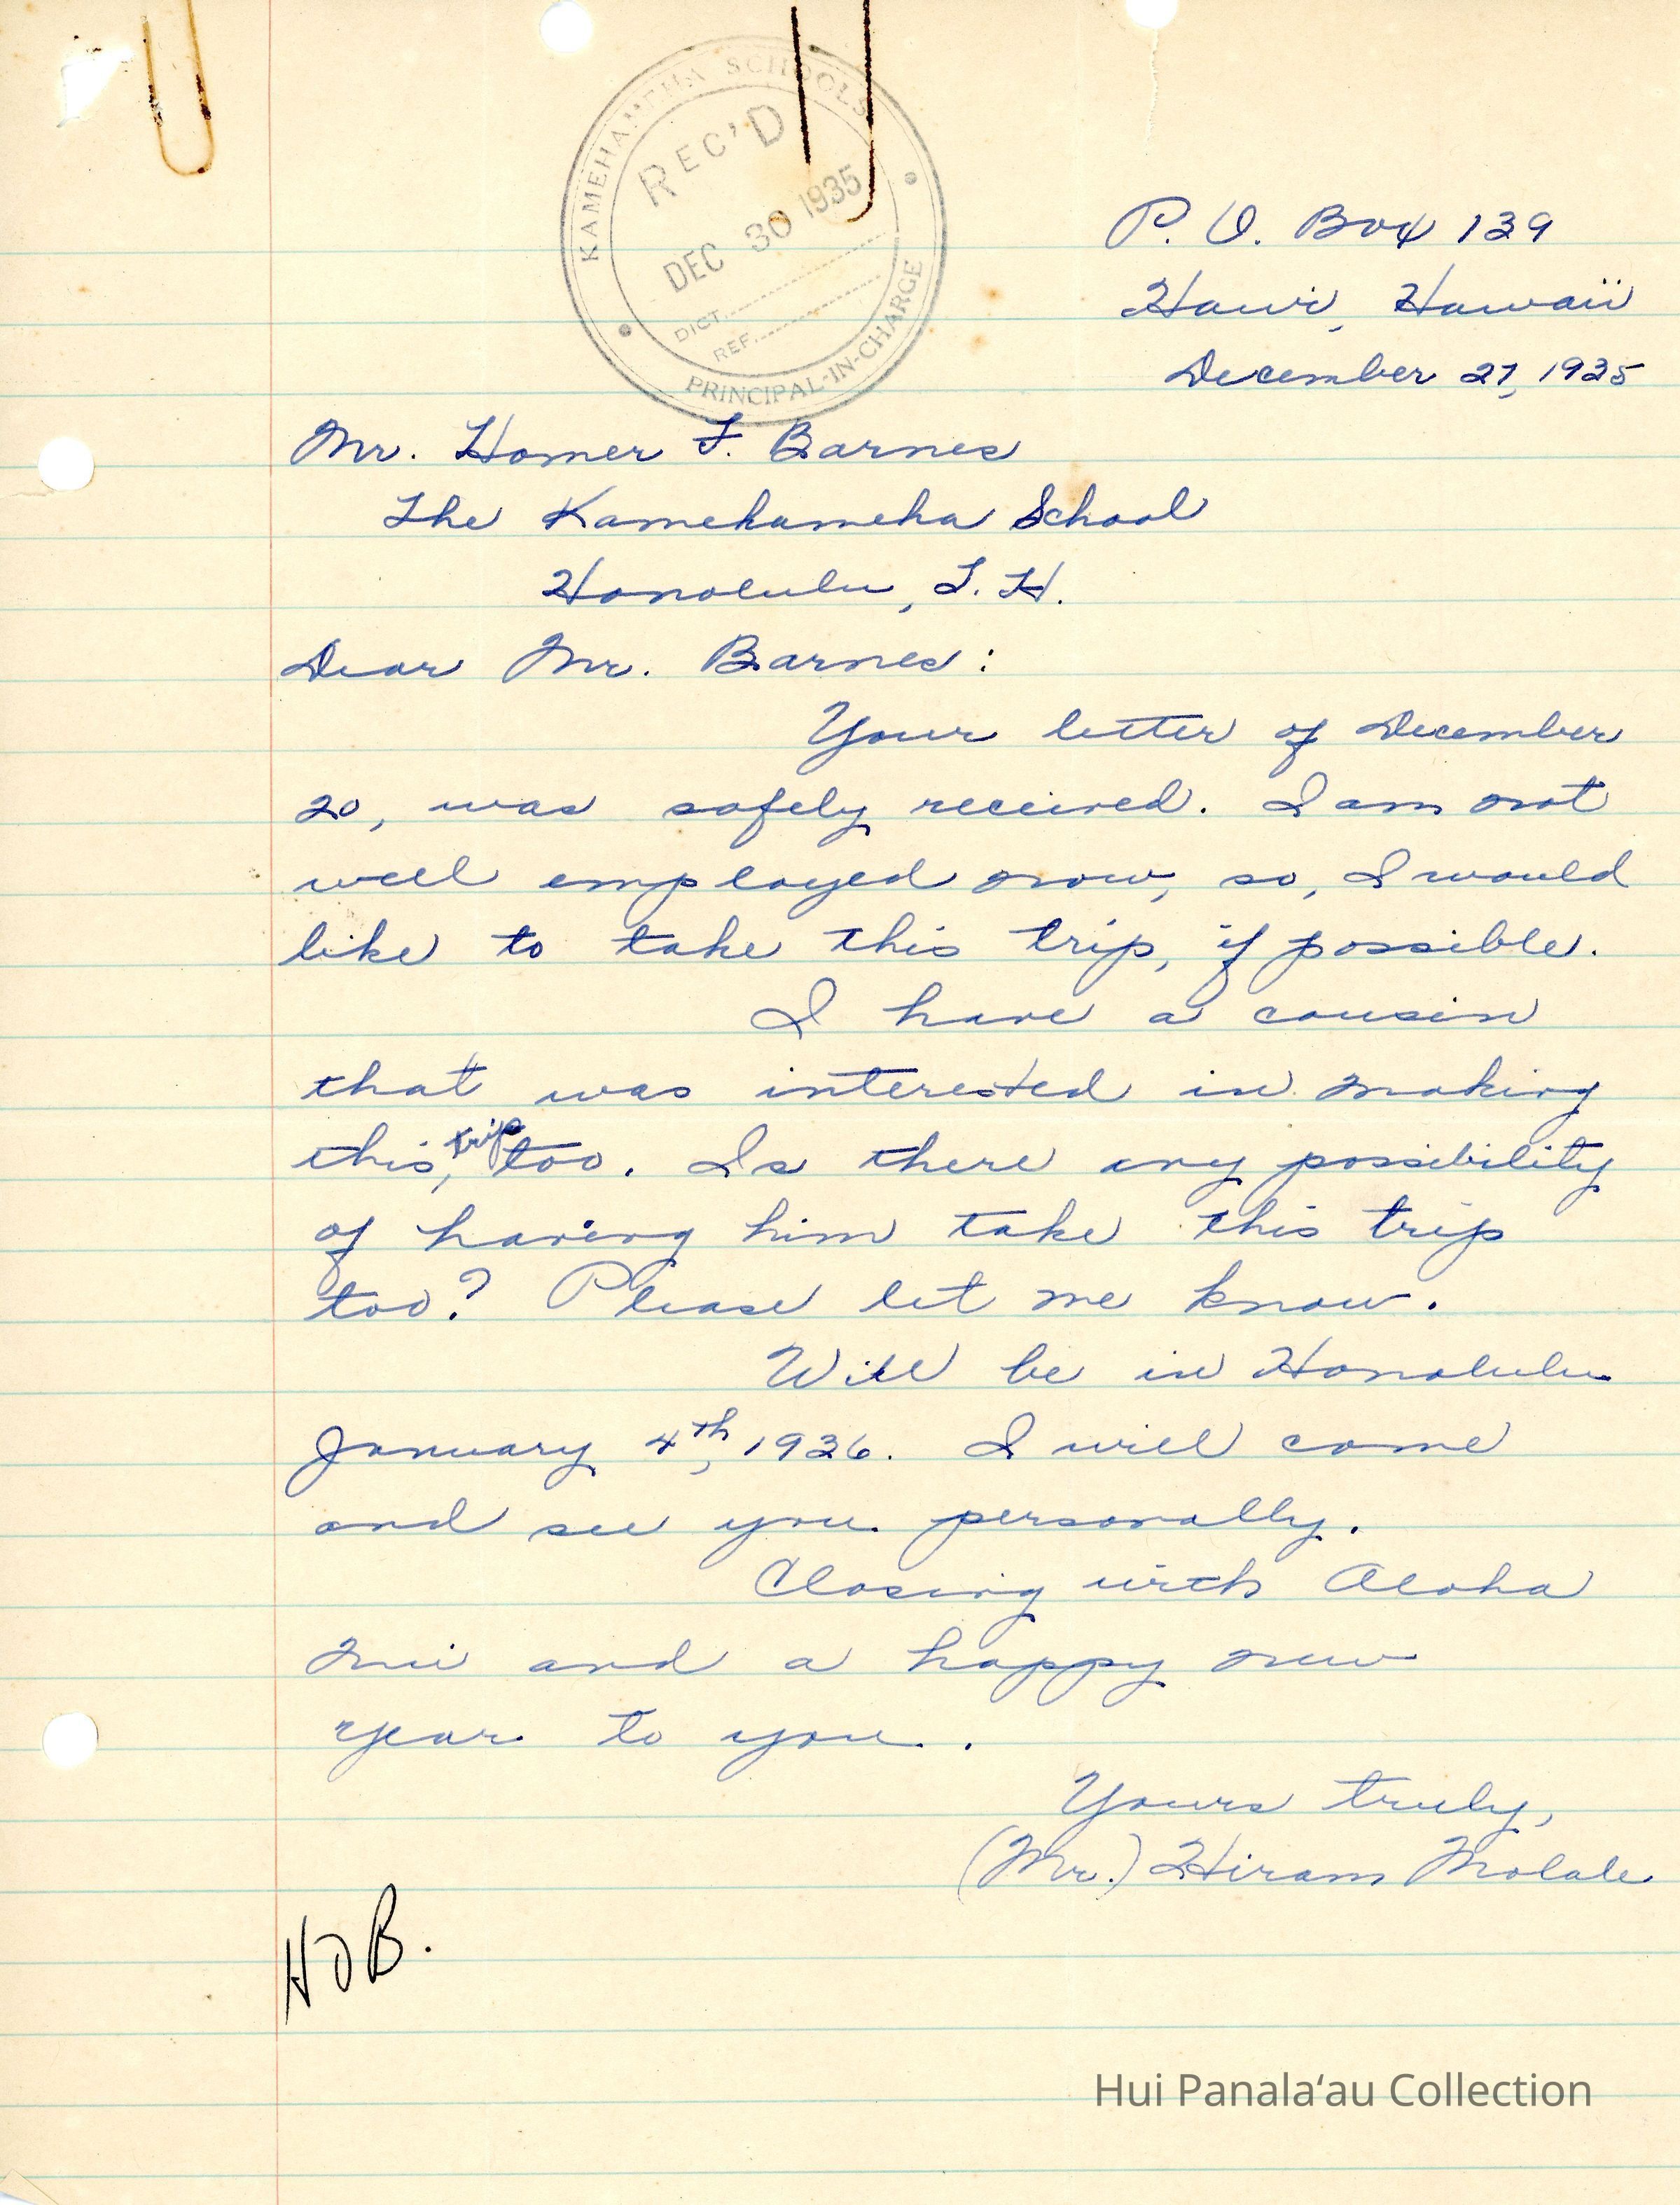 KAMEHAMEHA SCHOOLS
REC'D
DEC 30 1935
DICT.
REF.
PRINCIPAL-IN-CHARGE
P. O. Box 139
Hawi, Hawaii
December 27, 1935
Mr. Homer F. Barnes
The Kamehameha School
Honolulu, T. H.
Dear Mr. Barnes:
Your letter of December
20, was safely received. I am not
well employed now, so, I would
like to take this trip, if possible.
I have a cousin
that was interested in making
this, trip too. Is there any possibility
of having him take this trip
too? Please let me know.
Will be in Honolulu
January 4th, 1936. I will come
and see you personally.
Closing with Aloha
nui and a happy new
year to you.
Yours truly,
(Mr.) Hiram Molale
Hui Panalaʻau Collection